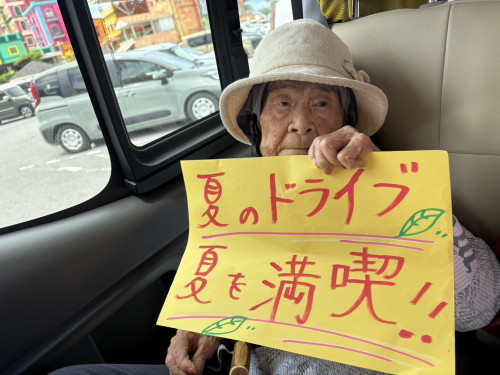 夏のドライブ
夏を満喫!!